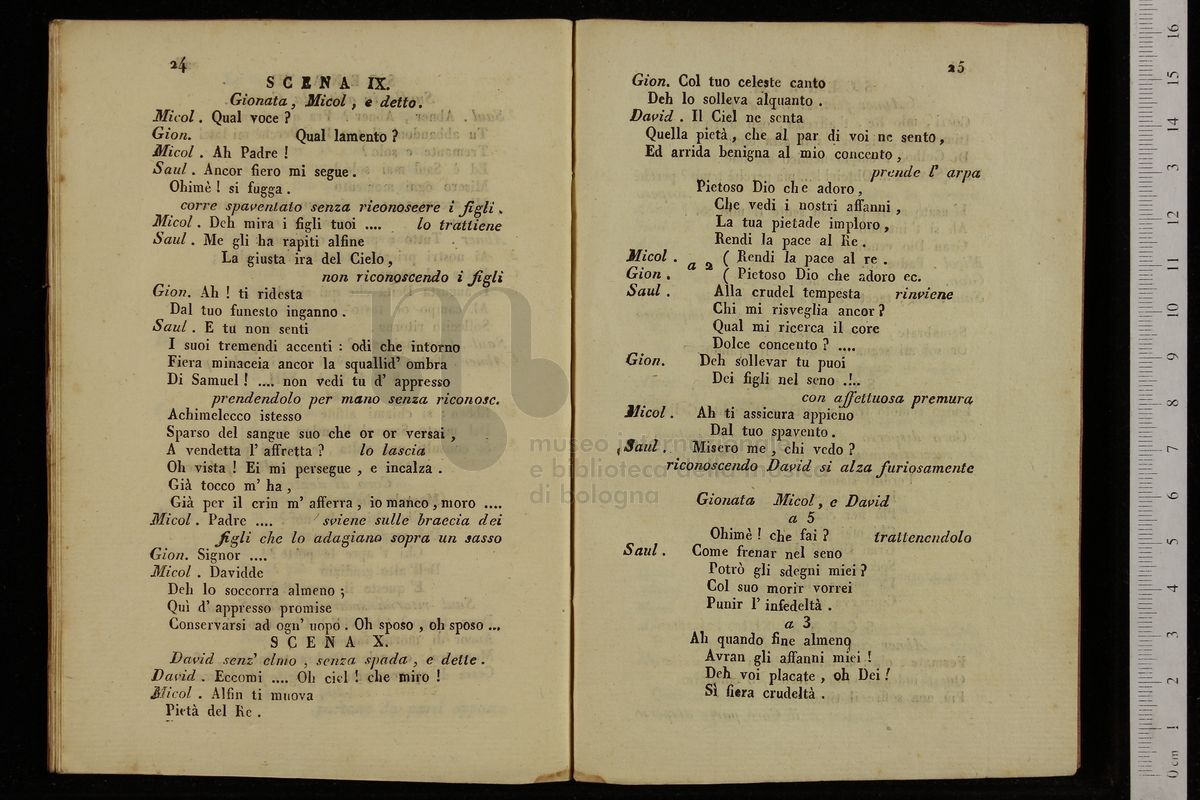 24
SCENA IX.
Gionata, Micol, e detto.
Micol. Qual voce ?
Gion. Qual lamento ?
Micol. Ah Padre !
Saul. Ancor fiero mi segue.
Ohimè ! si fugga.
corre spaventato senza riconoscere i figli.
Micol. Deh mira i figli tuoi .... lo trattiene
Saul. Me gli ha rapiti alfine
La giusta ira del Cielo,
non riconoscendo i figli
Gion. Ah ! ti ridesta
Dal tuo funesto inganno.
Saul. E tu non senti
I suoi tremendi accenti : odi che intorno
Fiera minaccia ancor la squallid' ombra
Di Samuel ! .... non vedi tu d' appresso
prendendolo per mano senza riconosc.
Achimelecco istesso
Sparso del sangue suo che or or versai ,
A vendetta l' affretta ? lo lascia
Oh vista ! Ei mi persegue , e incalza .
Già tocco m' ha ,
Già per il crin m' afferra , io manco , moro ....
Micol. Padre .... sviene sulle braccia dei
figli che lo adagiano sopra un sasso
Gion. Signor ....
Micol . Davidde
Deh lo soccorra almeno ;
Quì d' appresso promise
Conservarsi ad ogn' uopo . Oh sposo , oh sposo ...
SCENA X.
David senz' elmo , senza spada , e dette .
David . Eccomi .... Oh ciel ! che miro !
Micol . Alfin ti muova
Pietà del Re .
25
Gion. Col tuo celeste canto
Deh lo solleva alquanto .
David . Il Ciel ne senta
Quella pietà , che al par di voi ne sento ,
Ed arrida benigna al mio concento ,
prende l' arpa
Pietoso Dio che adoro ,
Che vedi i nostri affanni ,
La tua pietade imploro ,
Rendi la pace al Re .
Micol . ( Rendi la pace al re .
a 2
Gion . ( Pietoso Dio che adoro ec.
Saul . Alla crudel tempesta rinviene
Chi mi risveglia ancor ?
Qual mi ricerca il core
Dolce concento ? ....
Gion. Deh sollevar tu puoi
Dei figli nel seno .!..
con affettuosa premura
Micol. Ah ti assicura appieno
Dal tuo spavento .
Saul. Misero me , chi vedo ?
riconoscendo David si alza furiosamente
Gionata Micol , e David
a 5
Ohimè ! che fai ? trattenendolo
Saul . Come frenar nel seno
Potrò gli sdegni miei ?
Col suo morir vorrei
Punir l' infedeltà .
a 3
Ah quando fine almeno
Avran gli affanni miei !
Deh voi placate , oh Dei !
Sì fiera crudeltà .
museo internazionale
e biblioteca della musica
di bologna
0 cm 1 2 3 4 5 6 7 8 9 10 11 12 13 14 15 16